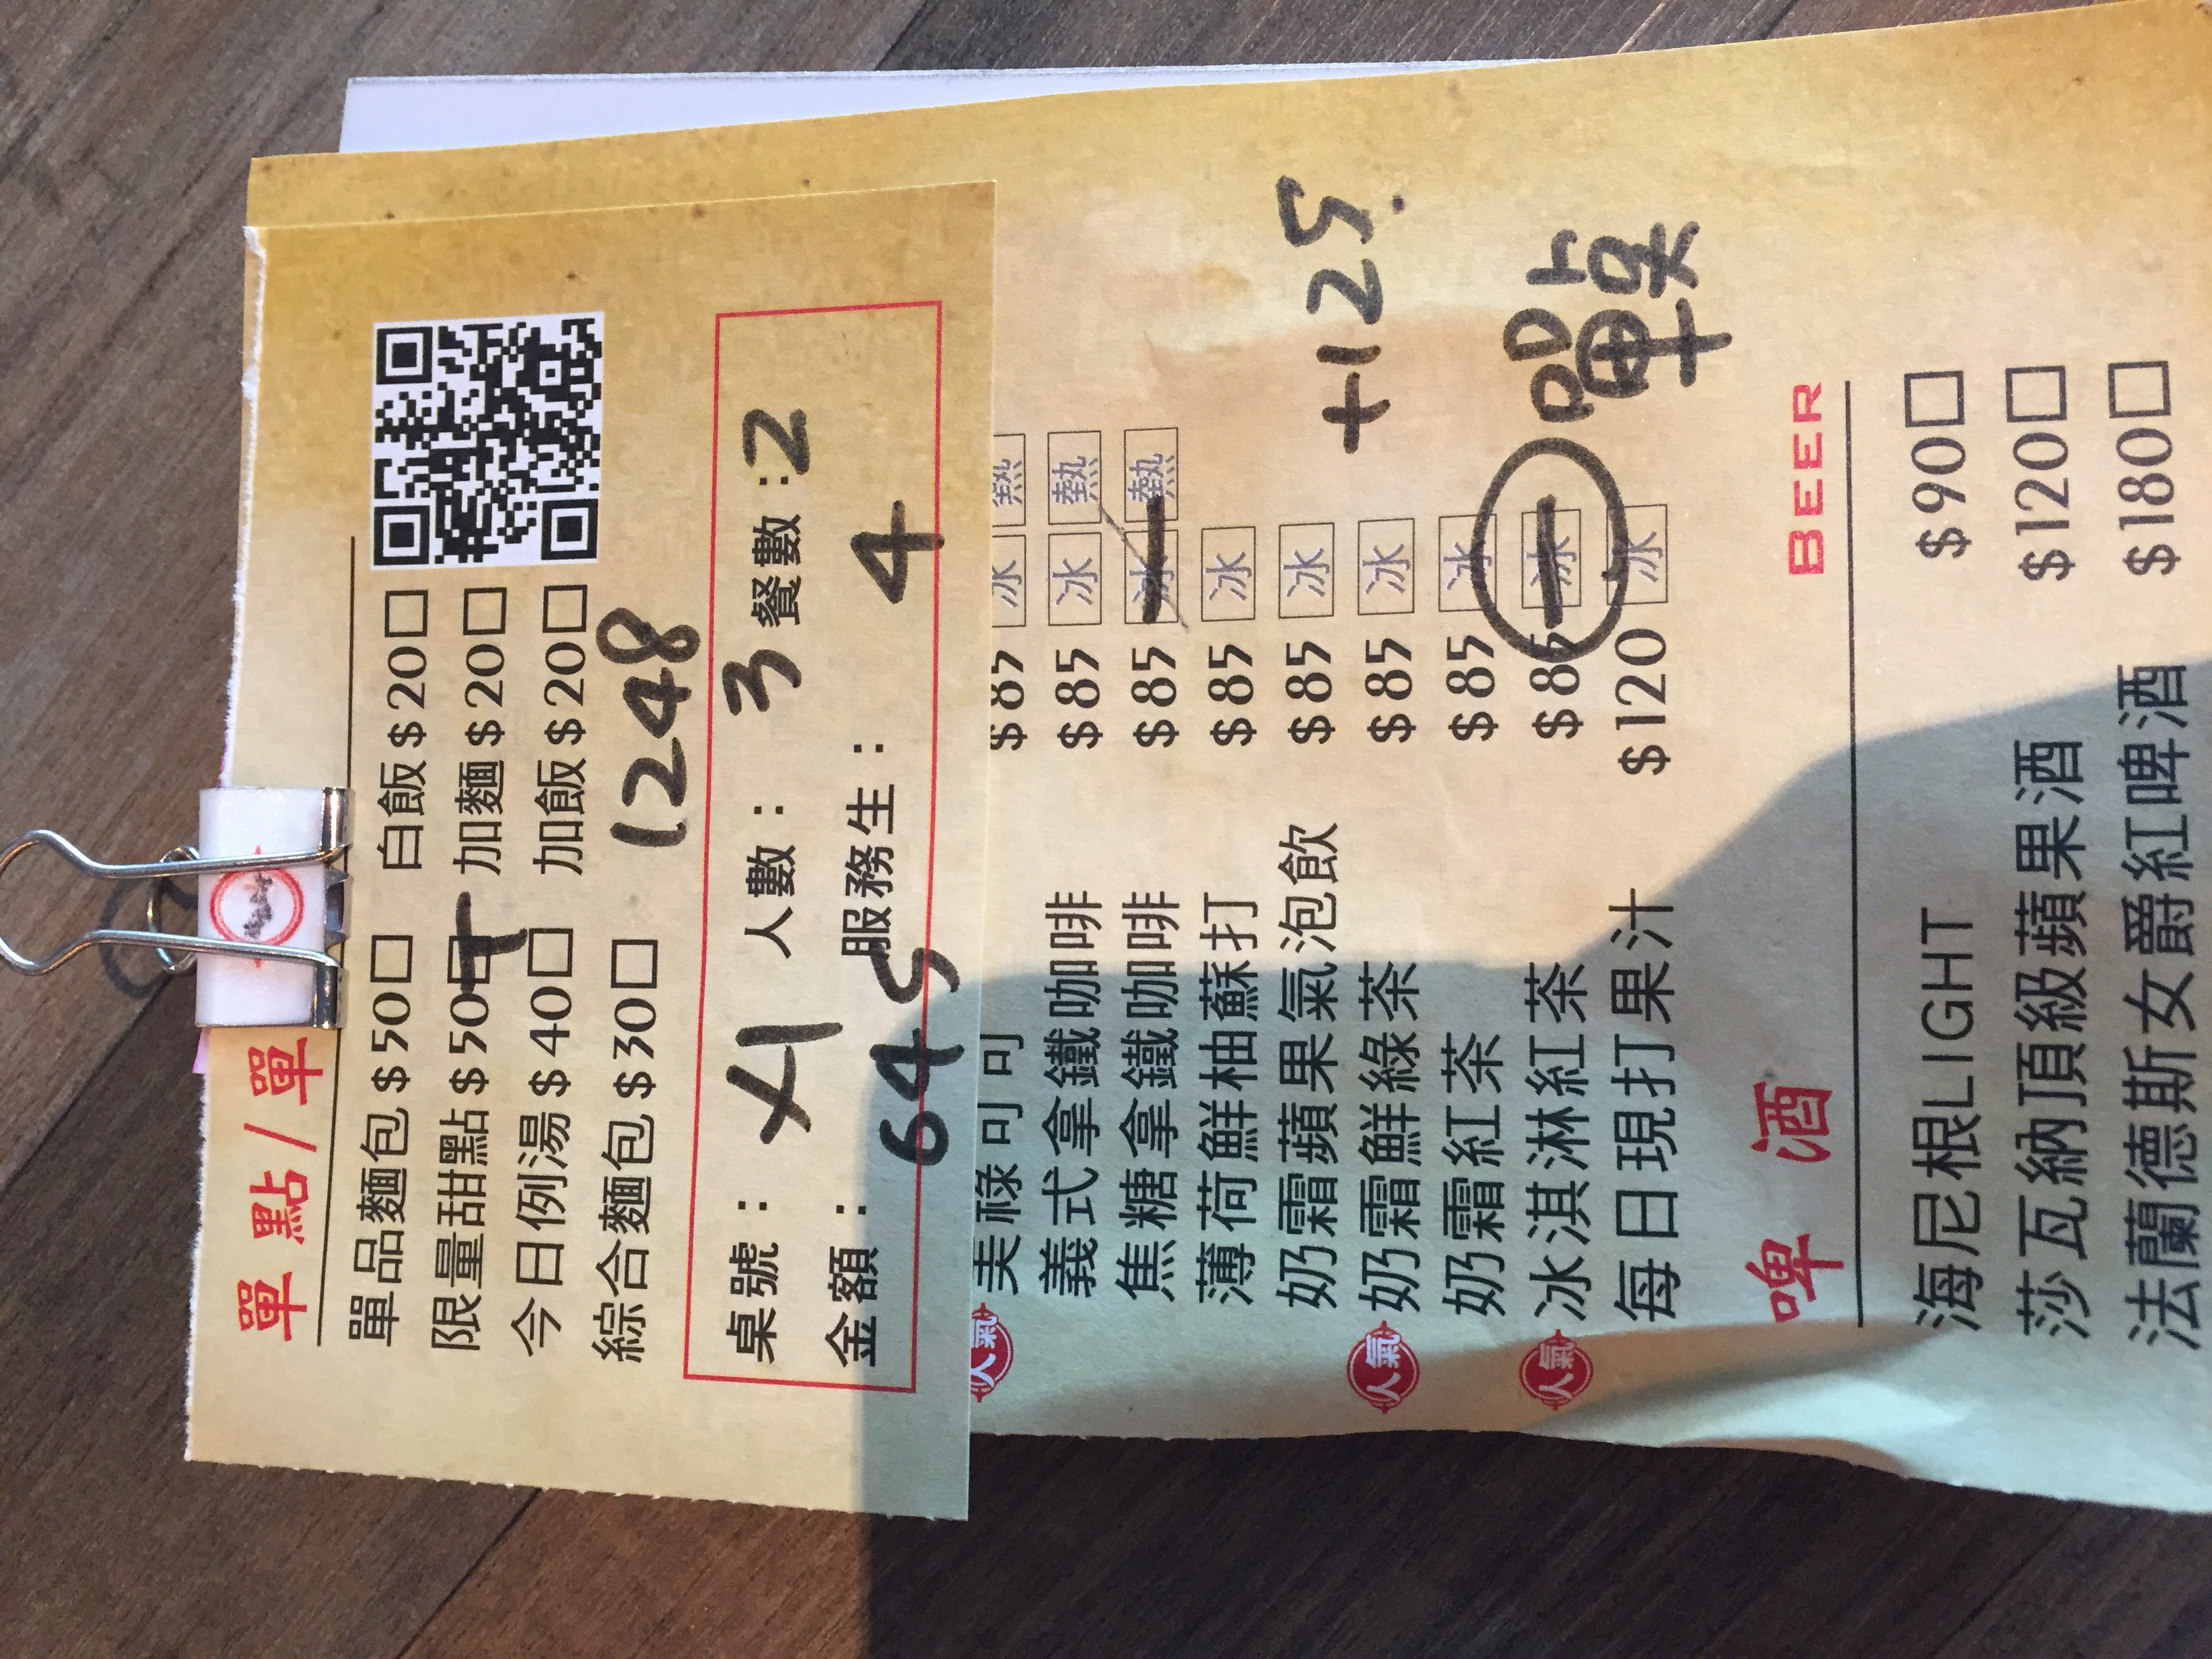 單點/單
單品麵包 $50□ 白飯 $20□
限量甜點 $50□ 加麵 $20□
今日例湯 $40□ 加飯 $20□
綜合麵包 $30□
1248
桌號： 人數： 3 餐數：2
金額： 645 服務生： 4
人氣 美祿可可 $85 冰 熱
義式拿鐵咖啡 $85 冰 熱
焦糖拿鐵咖啡 $85 冰 熱
薄荷鮮柚蘇打 $85 冰
奶霜蘋果氣泡飲 $85 冰
+125
人氣 奶霜鮮綠茶 $85 冰
奶霜紅茶 $85 冰
人氣 冰淇淋紅茶 $85 冰
單点
每日現打果汁 $120 冰
啤酒 BEER
海尼根LIGHT $90□
莎瓦納頂級蘋果酒 $120□
法蘭德斯女爵紅啤酒 $180□